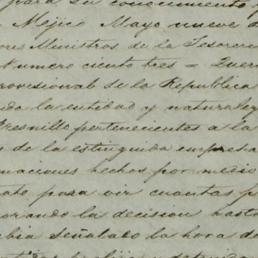 para su conocimiento
Mejico Mayo nueve d
ores Ministros de la Tesorer
Numero ciento tres = Quer
provisional de la Republica
da la entidad y naturaleza
Fresnillo pertenecientes a la
de la estinguida empresa
naciones hechos por medio
para oir cuantas p
orando la decision hasta
bia señalado la hora de